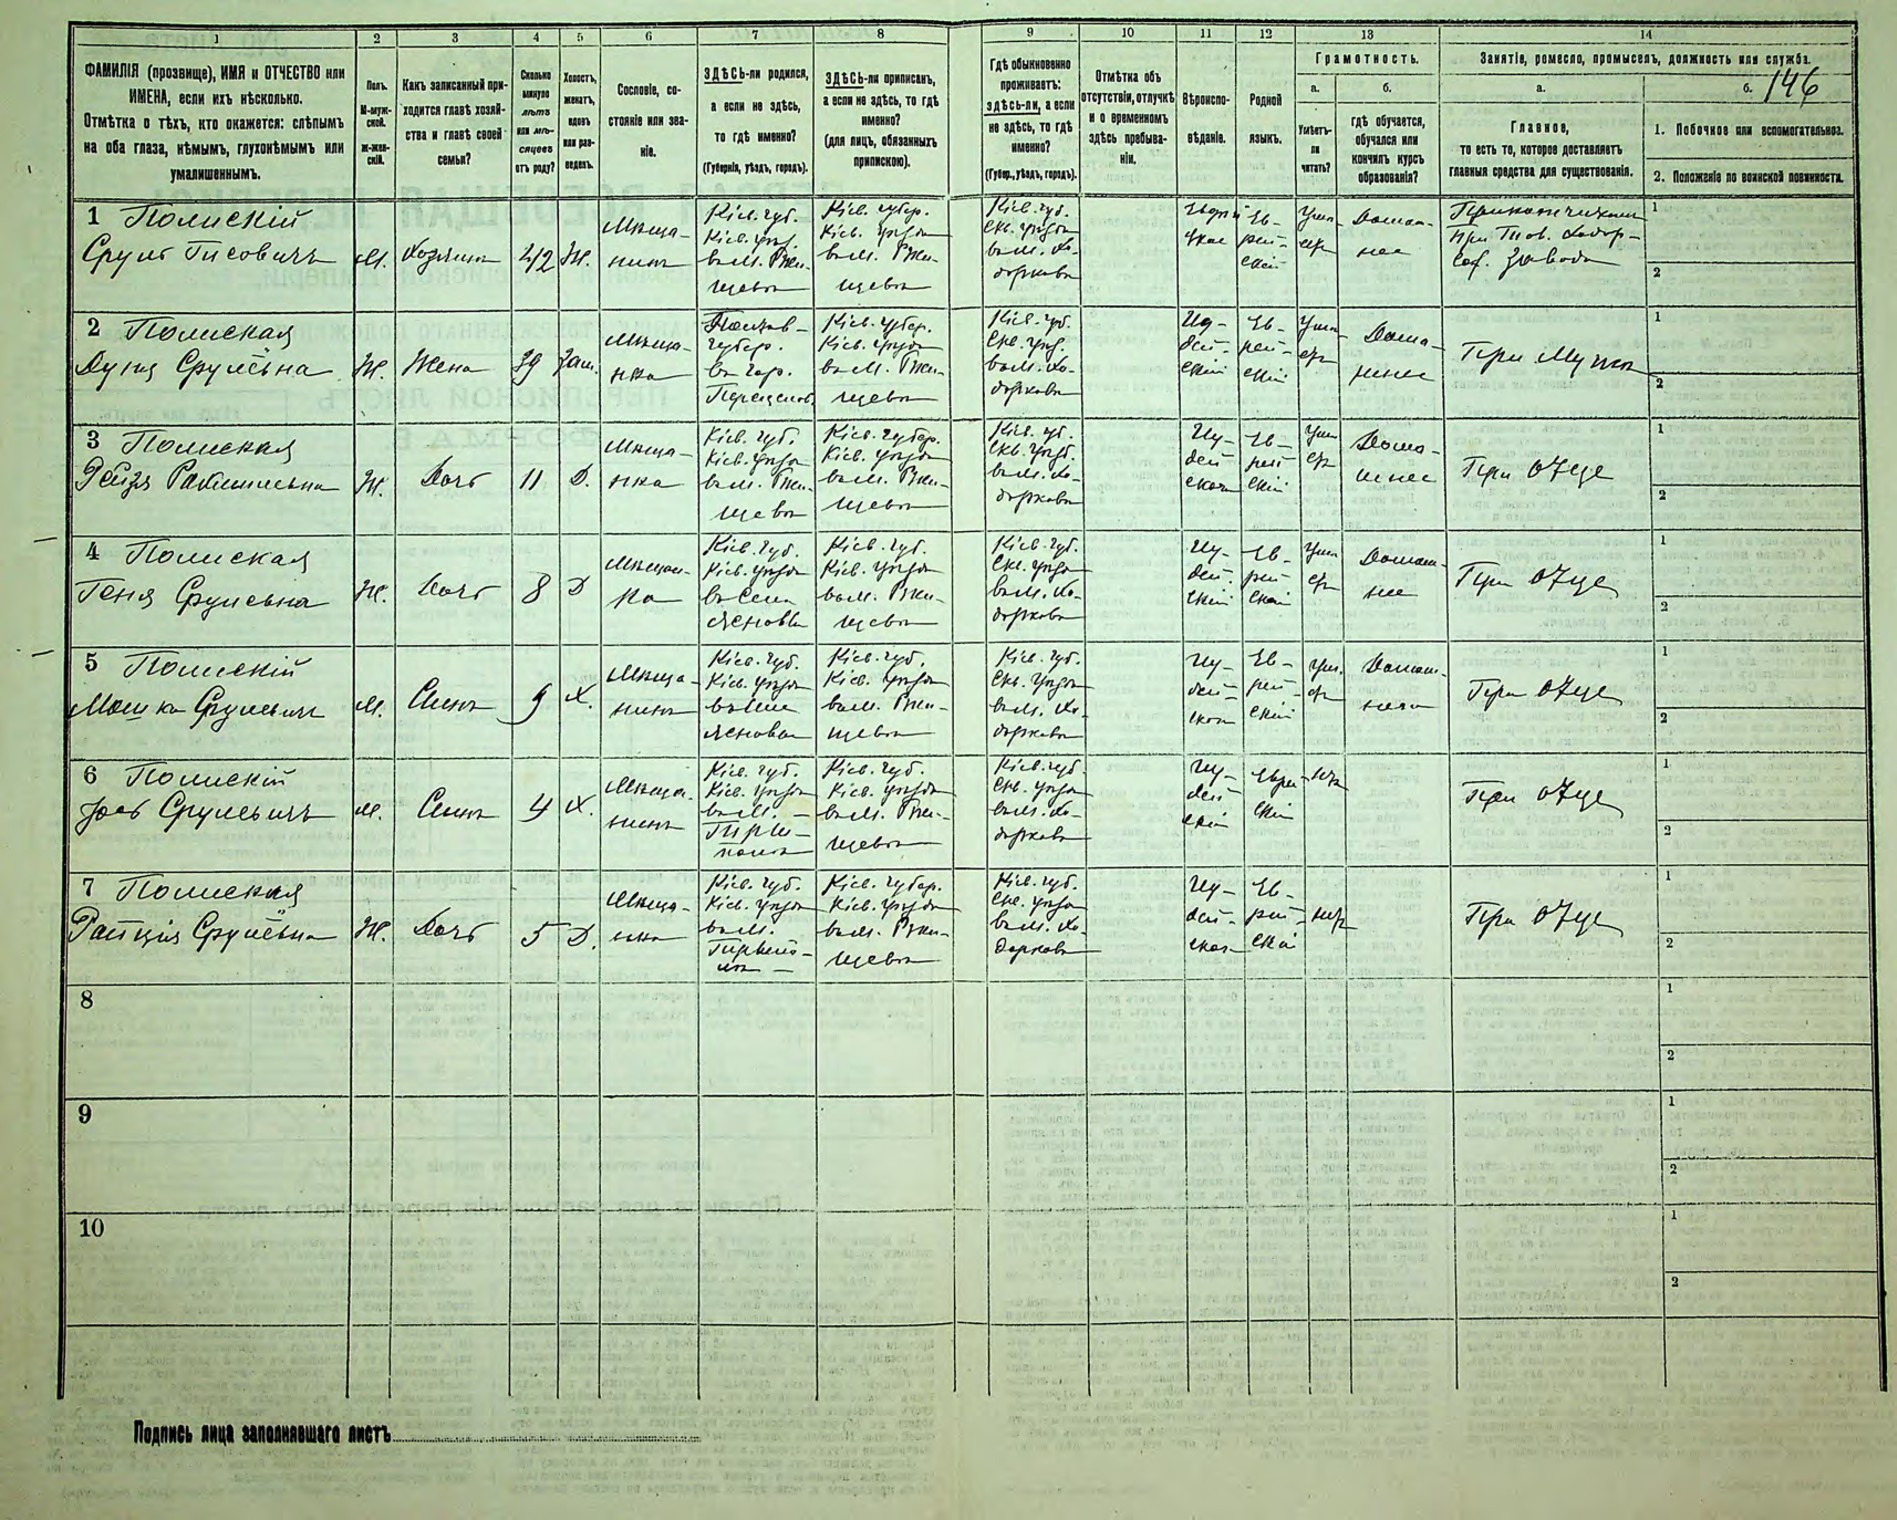 1 2 3 4 5 6 7 8 9 10 11 12 13 14
146
ФАМИЛІЯ (прозвище), ИМЯ и ОТЧЕСТВО или
ИМЕНА, если ихъ нѣсколько.
Отмѣтка о тѣхъ, кто окажется: слѣпымъ
на оба глаза, нѣмымъ, глухонѣмымъ или
умалишеннымъ.
Полъ.
М-муж-
ской.
Ж-жен-
скій.
Какъ записанный при-
ходится главѣ хозяй-
ства и главѣ своей
семьи?
Сколько
минуло
лѣтъ
или мѣ-
сяцевъ
отъ роду?
Холостъ,
женатъ,
вдовъ
или раз-
веденъ.
Сословіе, со-
стояніе или зва-
ніе.
ЗДѢСЬ-ли родился,
а если не здѣсь,
то гдѣ именно?
(Губернія, уѣздъ, городъ).
ЗДѢСЬ-ли приписанъ,
а если не здѣсь, то гдѣ
именно?
(для лицъ, обязанныхъ
припискою).
Гдѣ обыкновенно
проживаетъ:
здѣсь-ли, а если
не здѣсь, то гдѣ
именно?
(Губер., уѣздъ, городъ).
Отмѣтка объ
отсутствіи, отлучкѣ
и о временномъ
здѣсь пребыва-
ніи.
Вѣроиспо-
вѣданіе.
Родной
языкъ.
Грамотность.
а.
Умѣетъ-
ли
читать?
б.
гдѣ обучается,
обучался или
кончилъ курсъ
образованія?
Занятіе, ремесло, промыселъ, должность или служба.
а.
Главное,
то есть то, которое доставляетъ
главныя средства для существованія.
б.
1. Побочное или вспомогательное.
2. Положеніе по воинской повинности.
1 Полискій
Сруль
М. Хозяинъ 42 Ж.
Мѣща-
нинъ
Кіев. губ.
Кіев. уѣзд.
въ м. Ржи-
щевѣ
Кіев. губер.
Кіев. уѣзда
въ м. Ржи-
щевѣ
Кіев. губ.
Скв. уѣзда
въ м. Хо-
доркови
Ев-
рей-
скій
1
2
2 Полиская
Срулёвна
Ж. Жена 39 Зам.
Мѣща-
нка
губер.
въ гор.
Кіев. губер.
Кіев. уѣзда
въ м. Ржи-
щевѣ
Кіев. губ.
Скв. уѣзд.
въ м. Хо-
доркови
Іу-
дей-
скій
Ев-
рей-
скій
Дома-
шнее
При Мужѣ
1
2
3 Полиская
Рейзя
Ж. Дочь 11 Д.
Мѣща-
нка
Кіев. губ.
Кіев. уѣзда
въ м. Ржи-
щевѣ
Кіев. губер.
Кіев. уѣзда
въ м. Ржи-
щевѣ
Кіев. губ.
Скв. уѣзд.
въ м. Хо-
доркови
Іу-
дей-
Ев-
рей-
скій
Дома-
шнее
При отце
1
2
4 Полиская
Геня Срулевна
Ж. Дочь 8 Д
Мѣщан-
ка
Кіев. губ.
Кіев. уѣзда
Кіев. губ.
Кіев. уѣзда
въ м. Ржи-
щевѣ
Кіев. губ.
Скв. уѣзда
въ м. Хо-
доркови
Іу-
дей-
скій
Ев-
рей-
скій
При отце
1
2
5 Полискій
Мошка Срулевичъ
М. Сынъ 9 Х.
Мѣща-
нинъ
Кіев. губ.
Кіев. уѣзда
Кіев. губ.
Кіев. уѣзда
въ м. Ржи-
щевѣ
Кіев. губ.
Скв. уѣзда
въ м. Хо-
доркови
Іу-
дей-
Ев-
рей-
скій
При отце
1
2
6 Полискій
Срулевичъ
М. Сынъ 4 Х.
Мѣща-
нинъ
Кіев. губ.
Кіев. уѣзда
въ м.
Кіев. губ.
Кіев. уѣзда
въ м. Ржи-
щевѣ
Кіев. губ.
Скв. уѣзда
въ м. Хо-
доркови
Іу-
дей-
скій
При отце
1
2
7 Полиская
Срулёвна
Ж. Дочь 5 Д.
Мѣща-
нка
Кіев. губ.
Кіев. уѣзда
въ м.
Кіев. губер.
Кіев. уѣзда
въ м. Ржи-
щевѣ
Кіев. губ.
Скв. уѣзда
въ м. Хо-
доркови
Іу-
дей-
Ев-
рей-
скій
При отце
1
2
8
1
2
9
1
2
10
1
2
Подпись лица заполнявшаго листъ